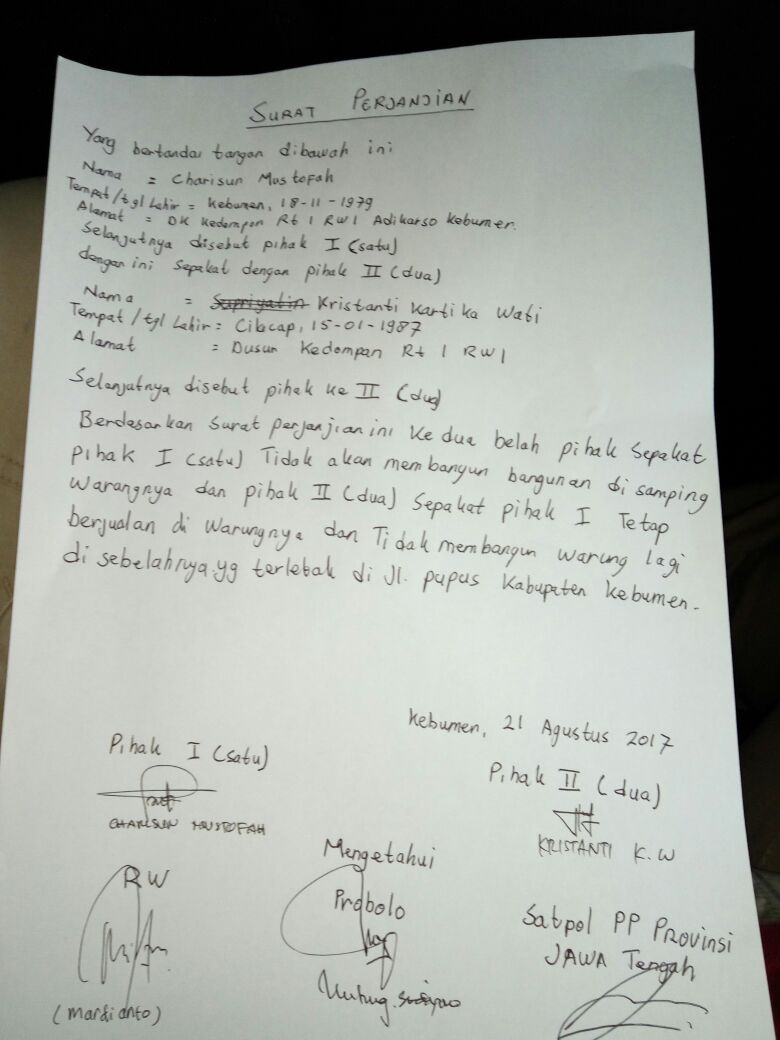 SURAT PERJANJIAN
Yang bertandai tangan dibawah ini
Nama = Charisun Mostofah
Tempat/tgl Lahir = Kebumen, 18-11-1979
Alamat = DK Kedompon Rt 1 RW 1 Adikarso Kebumen.
Selanjutnya disebut pihak I (satu)
dengan ini sepakat dengan pihak II (dua)
Nama = Supriyatin Kristanti Kartika Wati
Tempat/tgl Lahir = Cilacap, 15-01-1987
Alamat = Dusun Kedompan Rt 1 RW 1
Selanjutnya disebut pihak ke II (dua)
Berdasarkan surat perjanjian ini Ke dua belah pihak sepakat
pihak I (satu) Tidak akan membangun bangunan di samping
warangnya dan pihak II (dua) Sepakat pihak I Tetap
berjualan di warungnya dan Tidak membangun warung lagi
di sebelahnya yg terletak di Jl. pupus Kabupaten Kebumen.
Kebumen, 21 Agustus 2017
Pihak I (satu)
Pihak II (dua)
CHARISUN MUSTOFAH
KRISTANTI K.W
Mengetahui
RW
Prabolo
Satpol PP PROVINSI
JAWA Tengah
(mardianto)